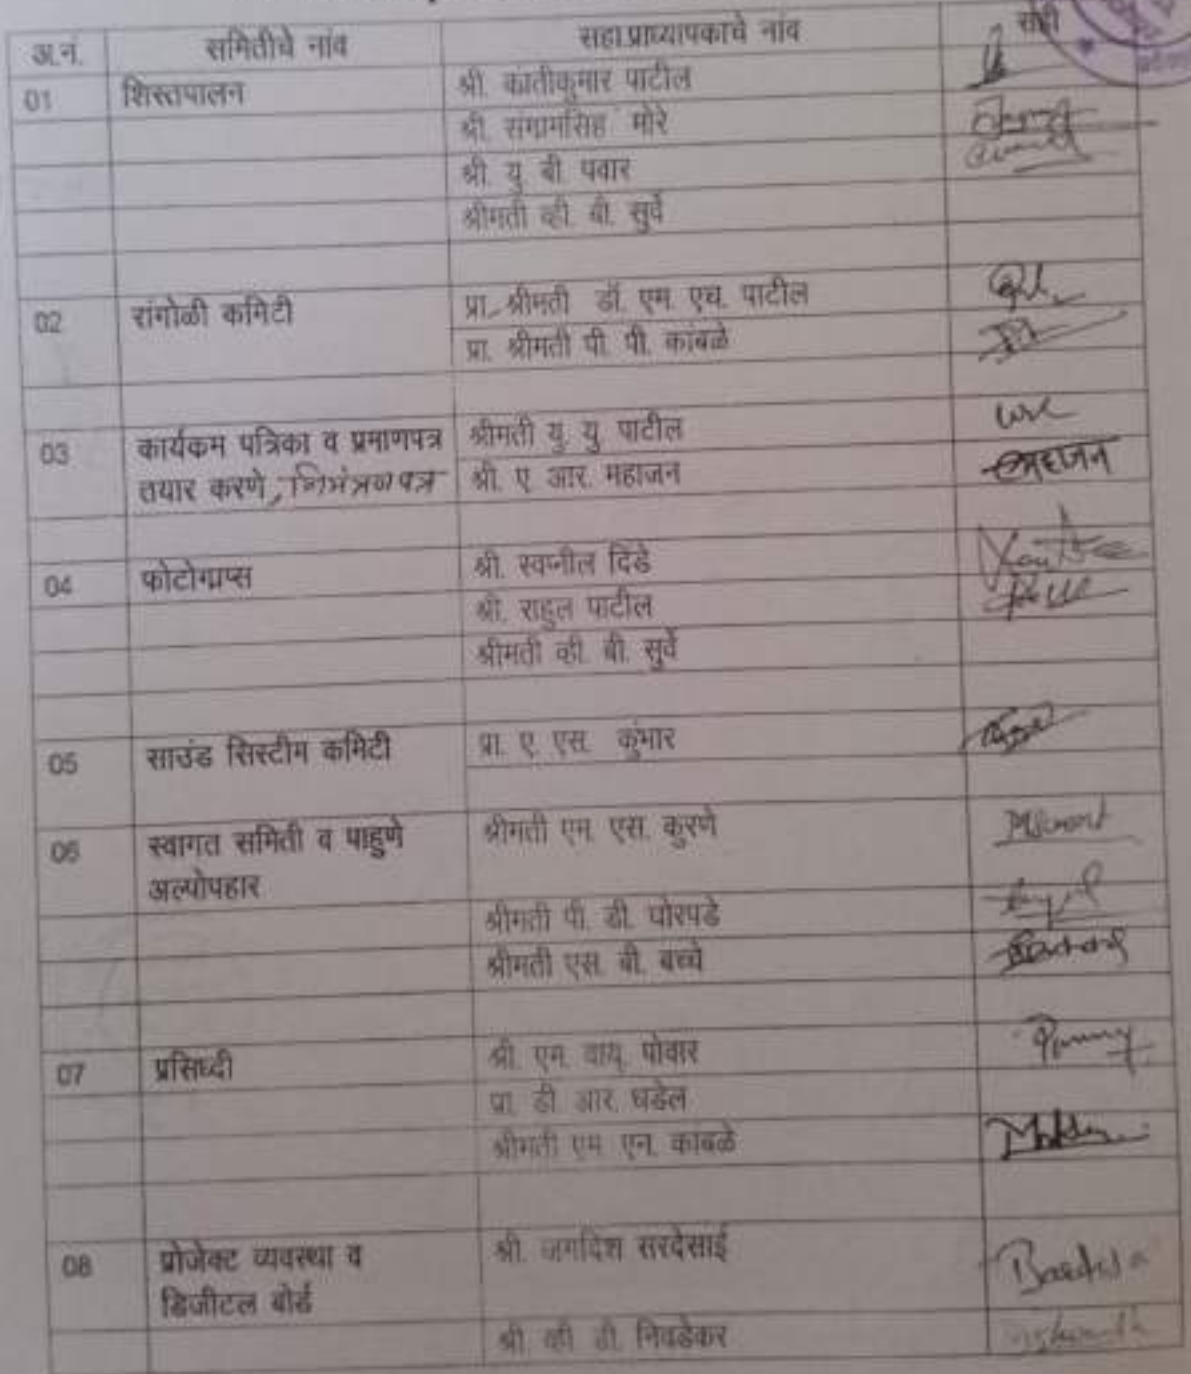 अ.नं. समितीचे नांव सहा.प्राध्यापकाचे नांव सही
01 शिस्तपालन श्री. कांतीकुमार पाटील
श्री. संग्रामसिंह मोरे
श्री. यु. बी. पवार
श्रीमती व्ही. बी. सुर्वे
02 रांगोळी कमिटी प्रा. श्रीमती डॉ. एम. एच. पाटील
प्रा. श्रीमती पी. पी. कांबळे
03 कार्यकम पत्रिका व प्रमाणपत्र श्रीमती यु. यु. पाटील
तयार करणे, निमंत्रण पत्र श्री. ए. आर. महाजन महाजन
04 फोटोग्राप्स श्री. स्वप्नील दिंडे
श्री. राहुल पाटील
श्रीमती व्ही. बी. सुर्वे
05 साउंड सिस्टीम कमिटी प्रा. ए. एस. कुंभार
06 स्वागत समिती व पाहुणे श्रीमती एम. एस. कुरणे
अल्पोपहार
श्रीमती पी. डी. घोरपडे
श्रीमती एस. बी. बच्चे
07 प्रसिध्दी श्री. एम. वाय. पोवार
प्रा. डी. आर. घडेल
श्रीमती एम. एन. कांबळे
08 प्रोजेक्ट व्यवस्था व श्री. जगदिश सरदेसाई
डिजीटल बोर्ड
श्री. व्ही. डी. निवडेकर